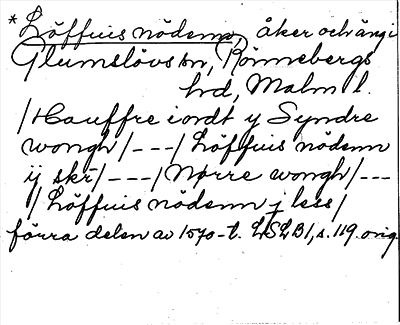 * Löffuis nödenn, åker och äng i
Glumslövs sn, Rönnebergs
hd, Malm l.
/Hauffre iordt y Syndre
wongh/---/ Löffuis nödenn
ij skr/---/ Nørre wongh/---
/ Löffuis nödenn j less/
förra delen av 1570-t. LSLB1, s. 119. orig.